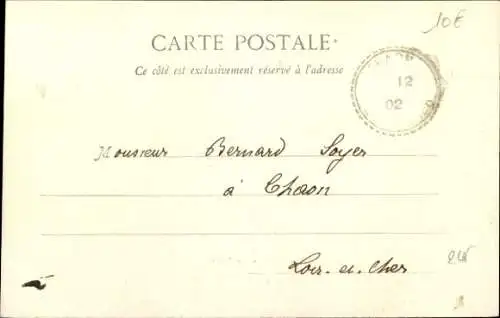 10€
CARTE POSTALE.
Ce côté est exclusivement réservé à l'adresse
12
02
Monsieur Bernard Soyer
à Chaon
Loir-et-Cher